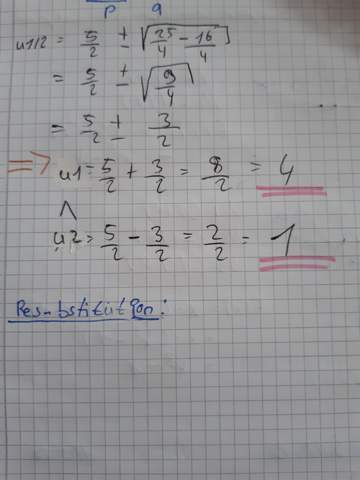 p q
u1/2 = 5/2 ± √(25/4 - 16/4)
= 5/2 ± √(9/4)
= 5/2 ± 3/2
⇒ u1 = 5/2 + 3/2 = 8/2 = 4
∧
u2 = 5/2 - 3/2 = 2/2 = 1
Resubstitution: